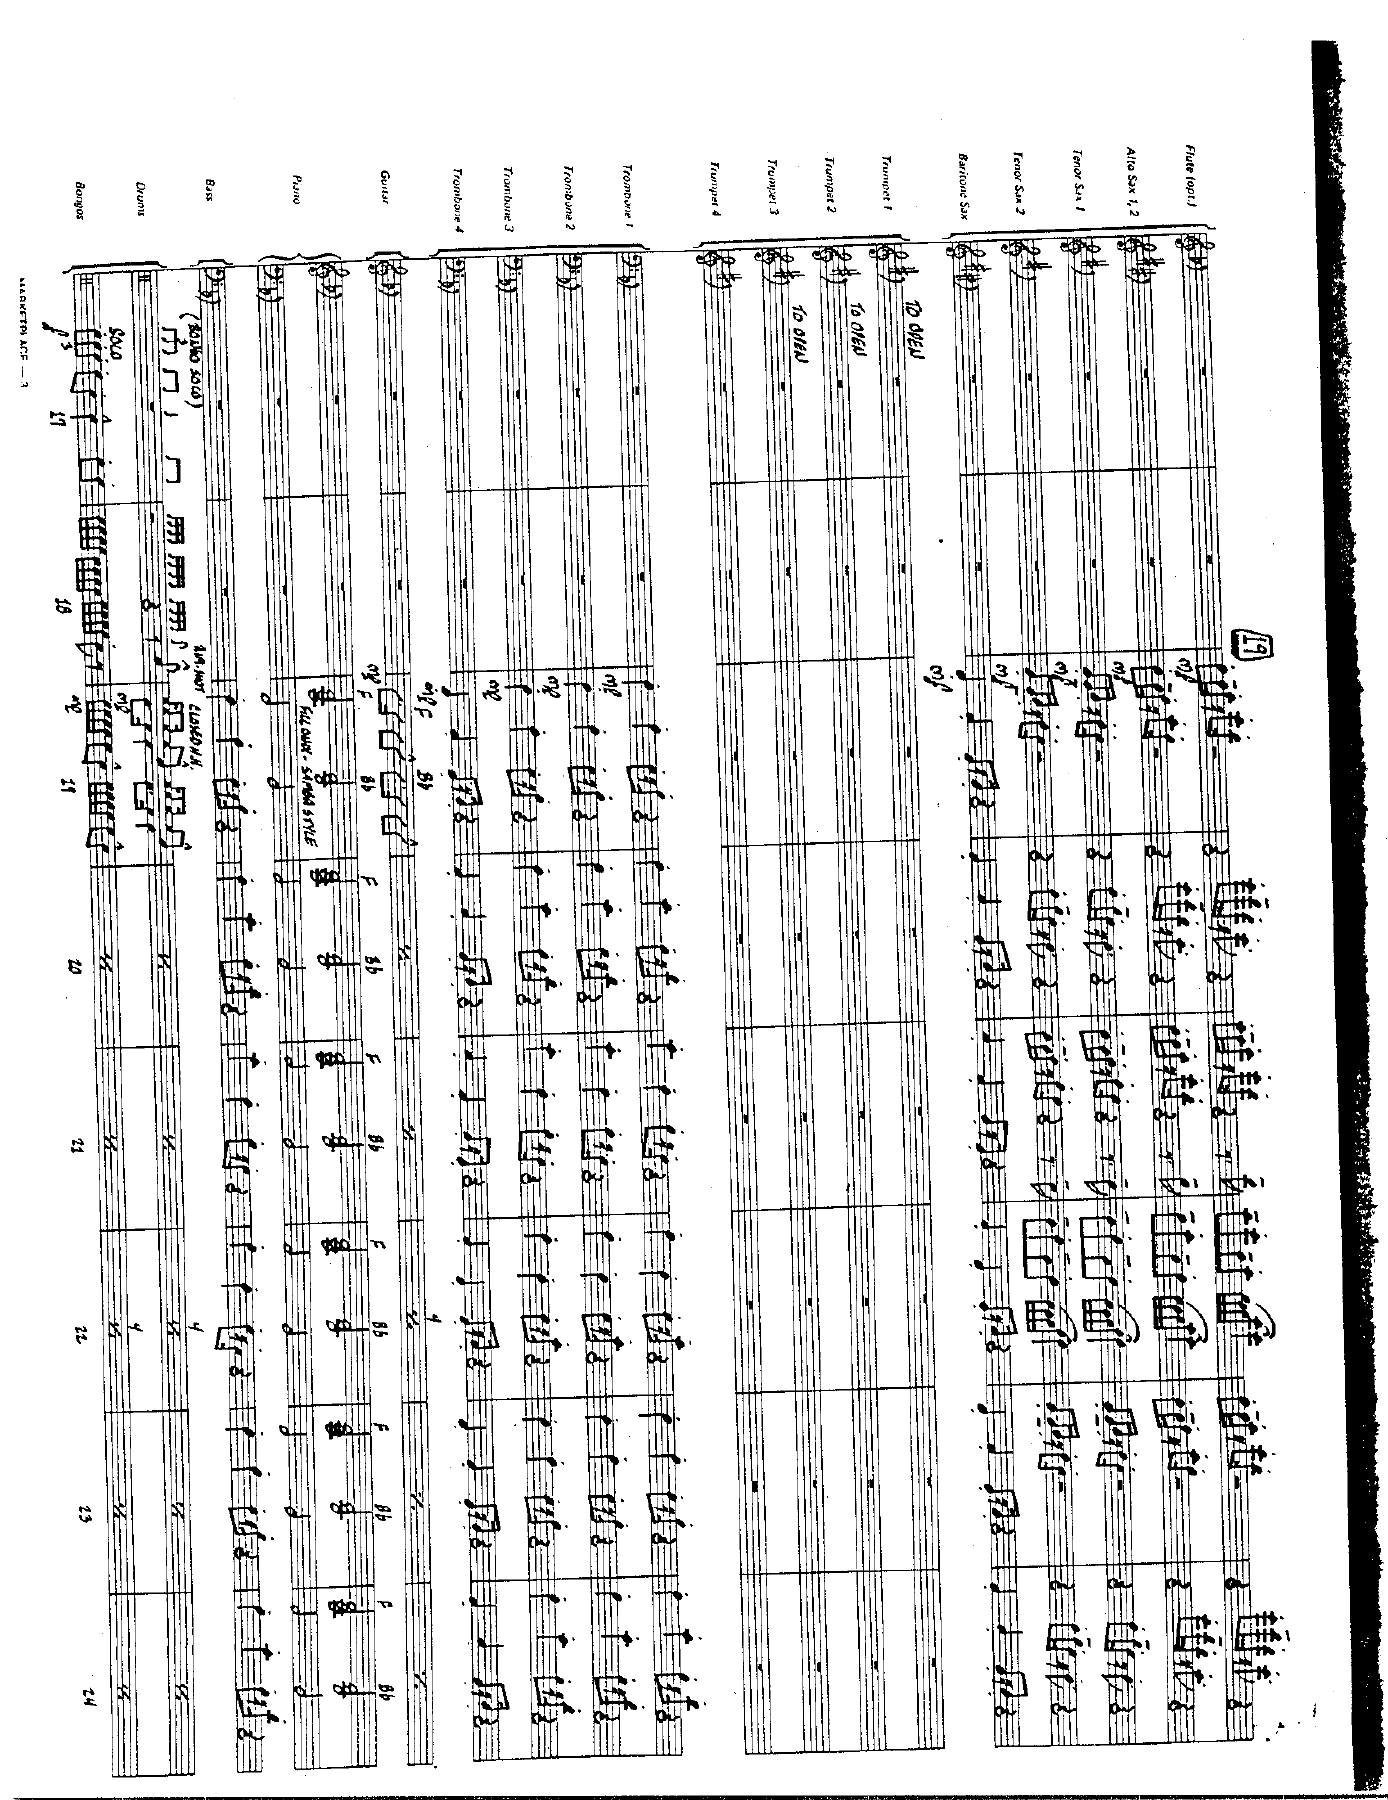 19
Flute (opt.)
Alto Sax 1, 2
mf
Tenor Sax 1
mf
Tenor Sax 2
mf
Baritone Sax
mf
Trumpet 1
TO OPEN
Trumpet 2
TO OPEN
Trumpet 3
TO OPEN
Trumpet 4
Trombone 1
mf
Trombone 2
mf
Trombone 3
mf
Trombone 4
mf
F Bb
Guitar
mf
4
Piano
F Bb F Bb F Bb F Bb F Bb F Bb
FILL OUT - SAMBA STYLE
Bass
(BONGO SOLO)
RIM SHOT CLOSED H.H.
4
Drums
mf
4
Bongos
SOLO
f
3
mf
17 18 19 20 21 22 23 24
MARKETPLACE — 3